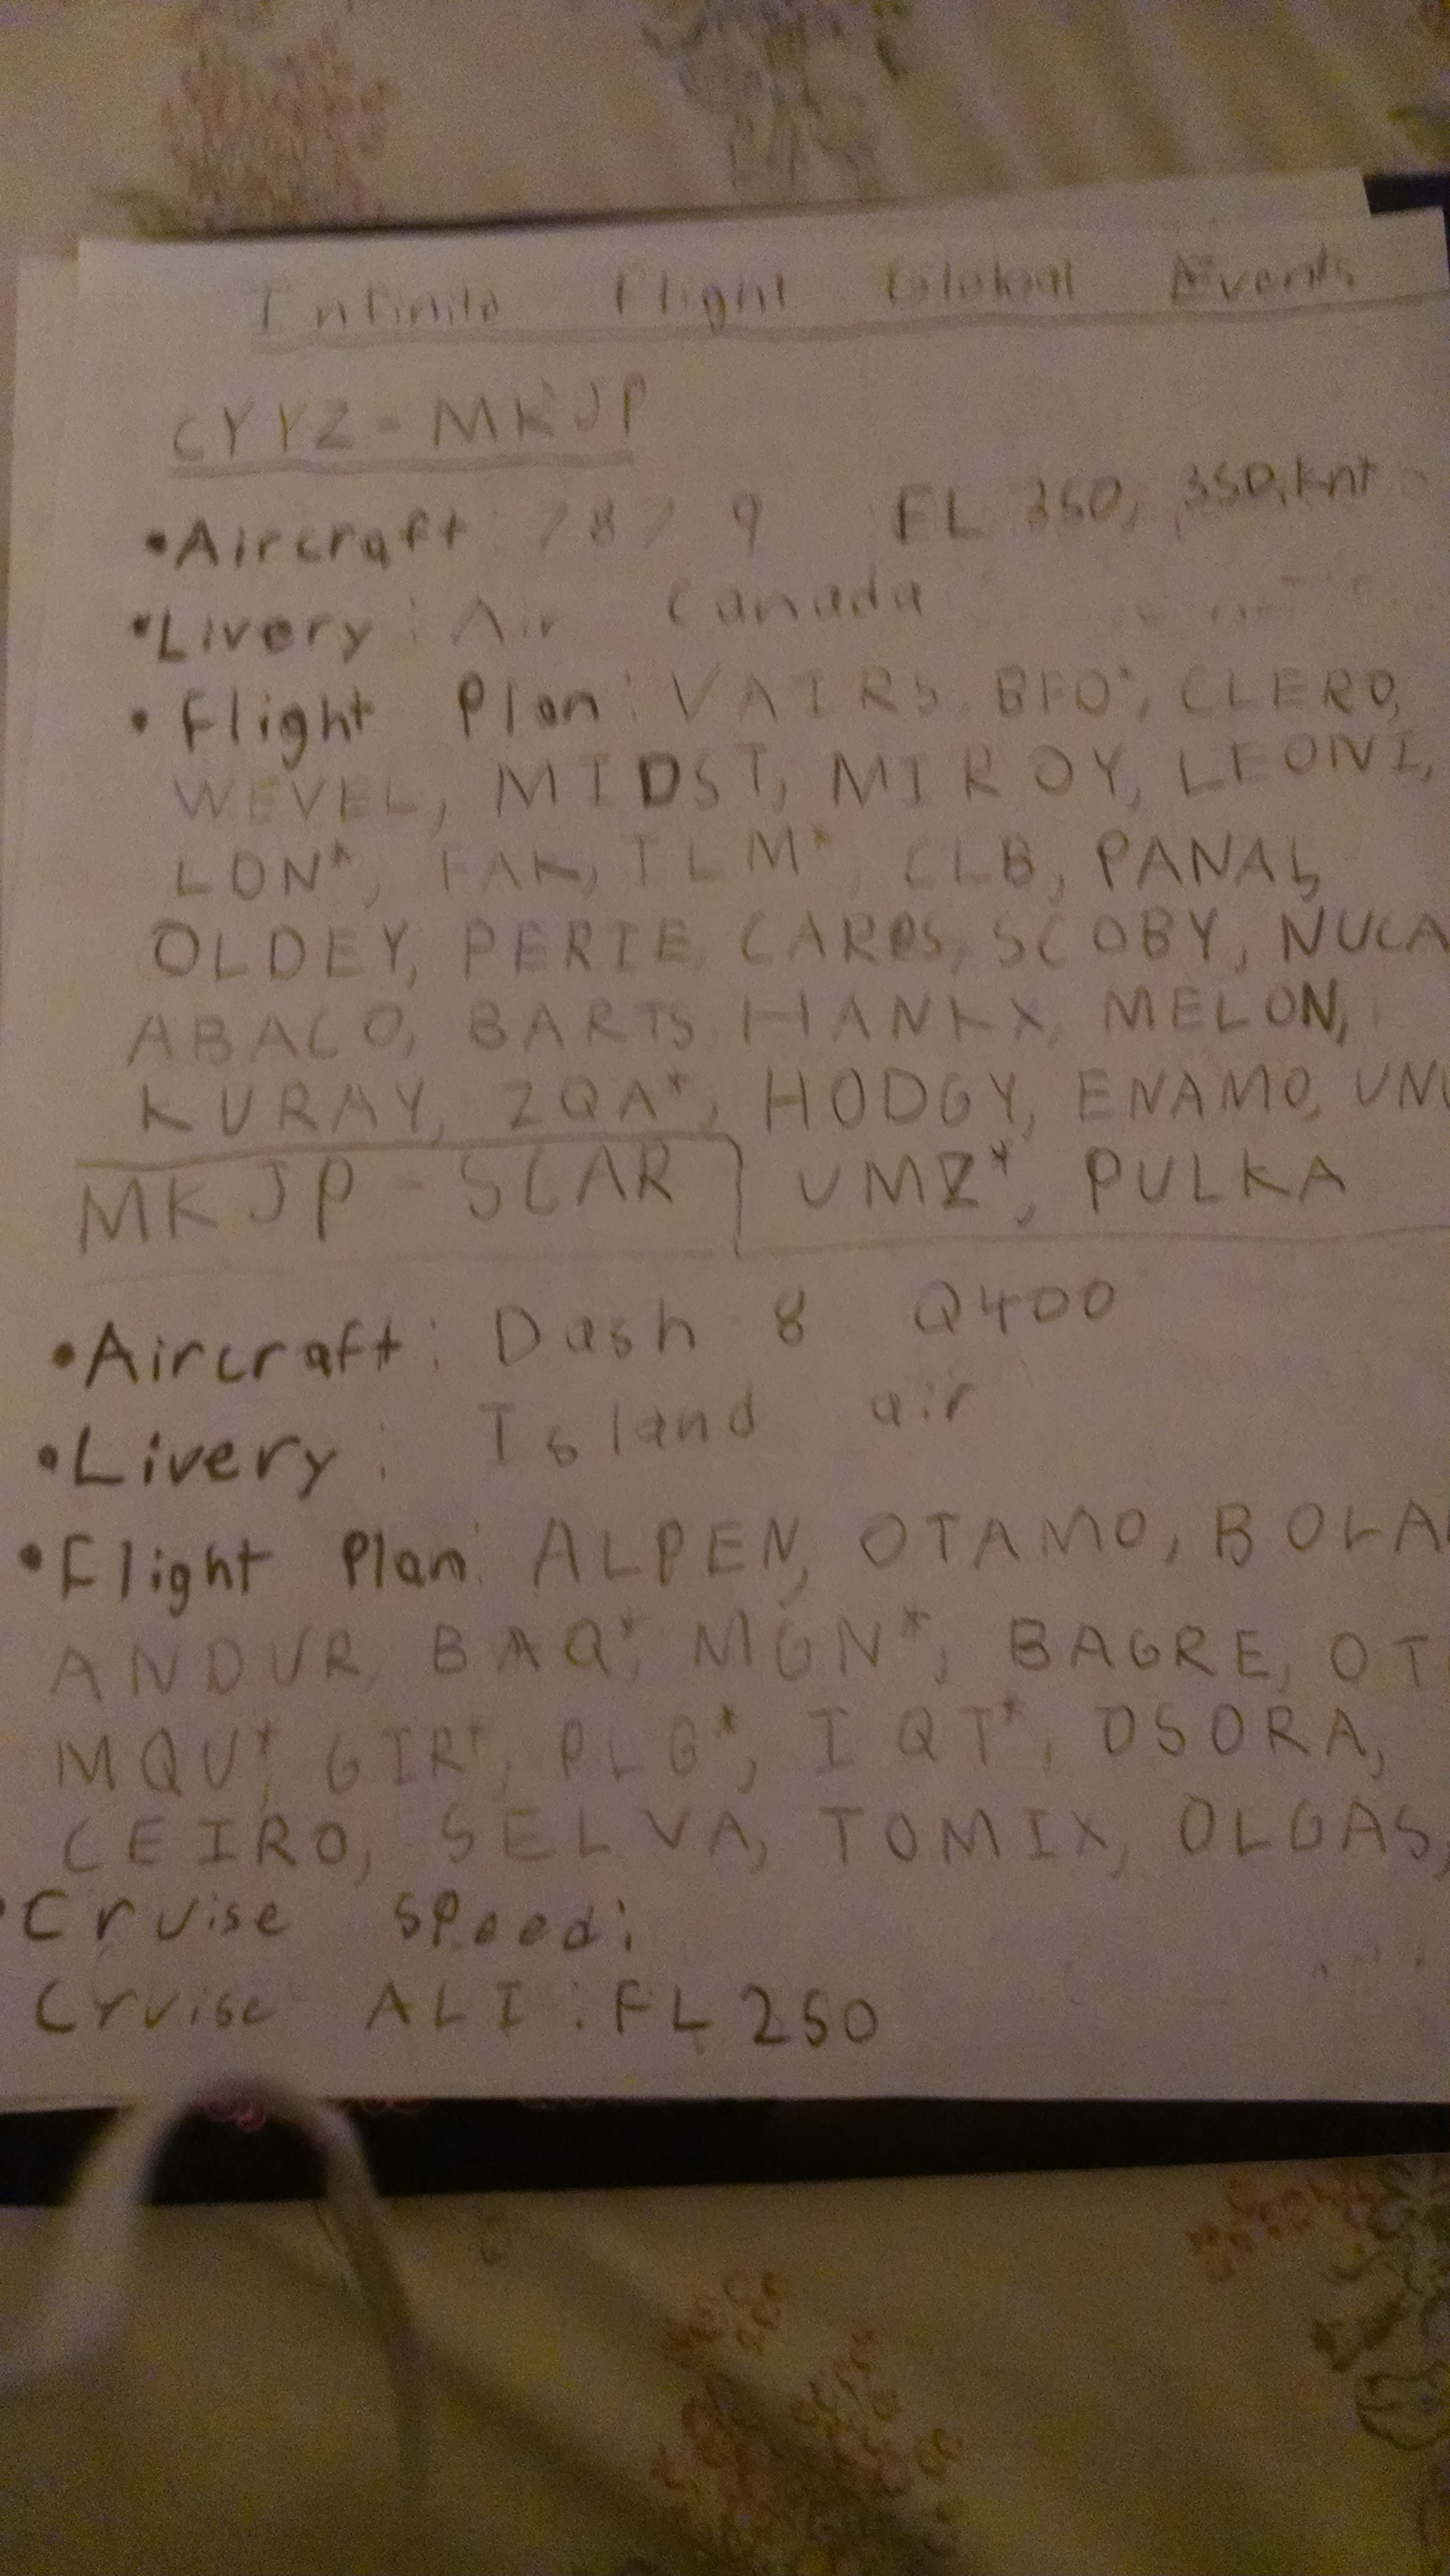 Infinite Flight Global Events
CYYZ - MKJP
•Aircraft: 787 9 FL 350, 350,knt
•Livery: Air Canada
•Flight Plan: VAIRS, BFO*, CLERO,
WEVEL, MIDST, MIROY, LEONI,
LON*, FAK, ILM*, CLB, PANAL,
OLDEY, PERIE, CARPS, SCOBY, NUCA
ABACO, BARTS, HANKX, MELON,
KURAY, ZQA*, HODGY, ENAMO,
UMZ*, PULKA
MKJP - SCAR
•Aircraft: Dash 8 Q400
•Livery: Island air
•Flight Plan: ALPEN, OTAMO,
ANDUR, BAQ*, MGN*, BAGRE,
MQU*, GIR*, PLG*, IQT*, OSORA,
CEIRO, SELVA, TOMIX, OLGAS,
•Cruise speed:
Cruise ALI: FL 250